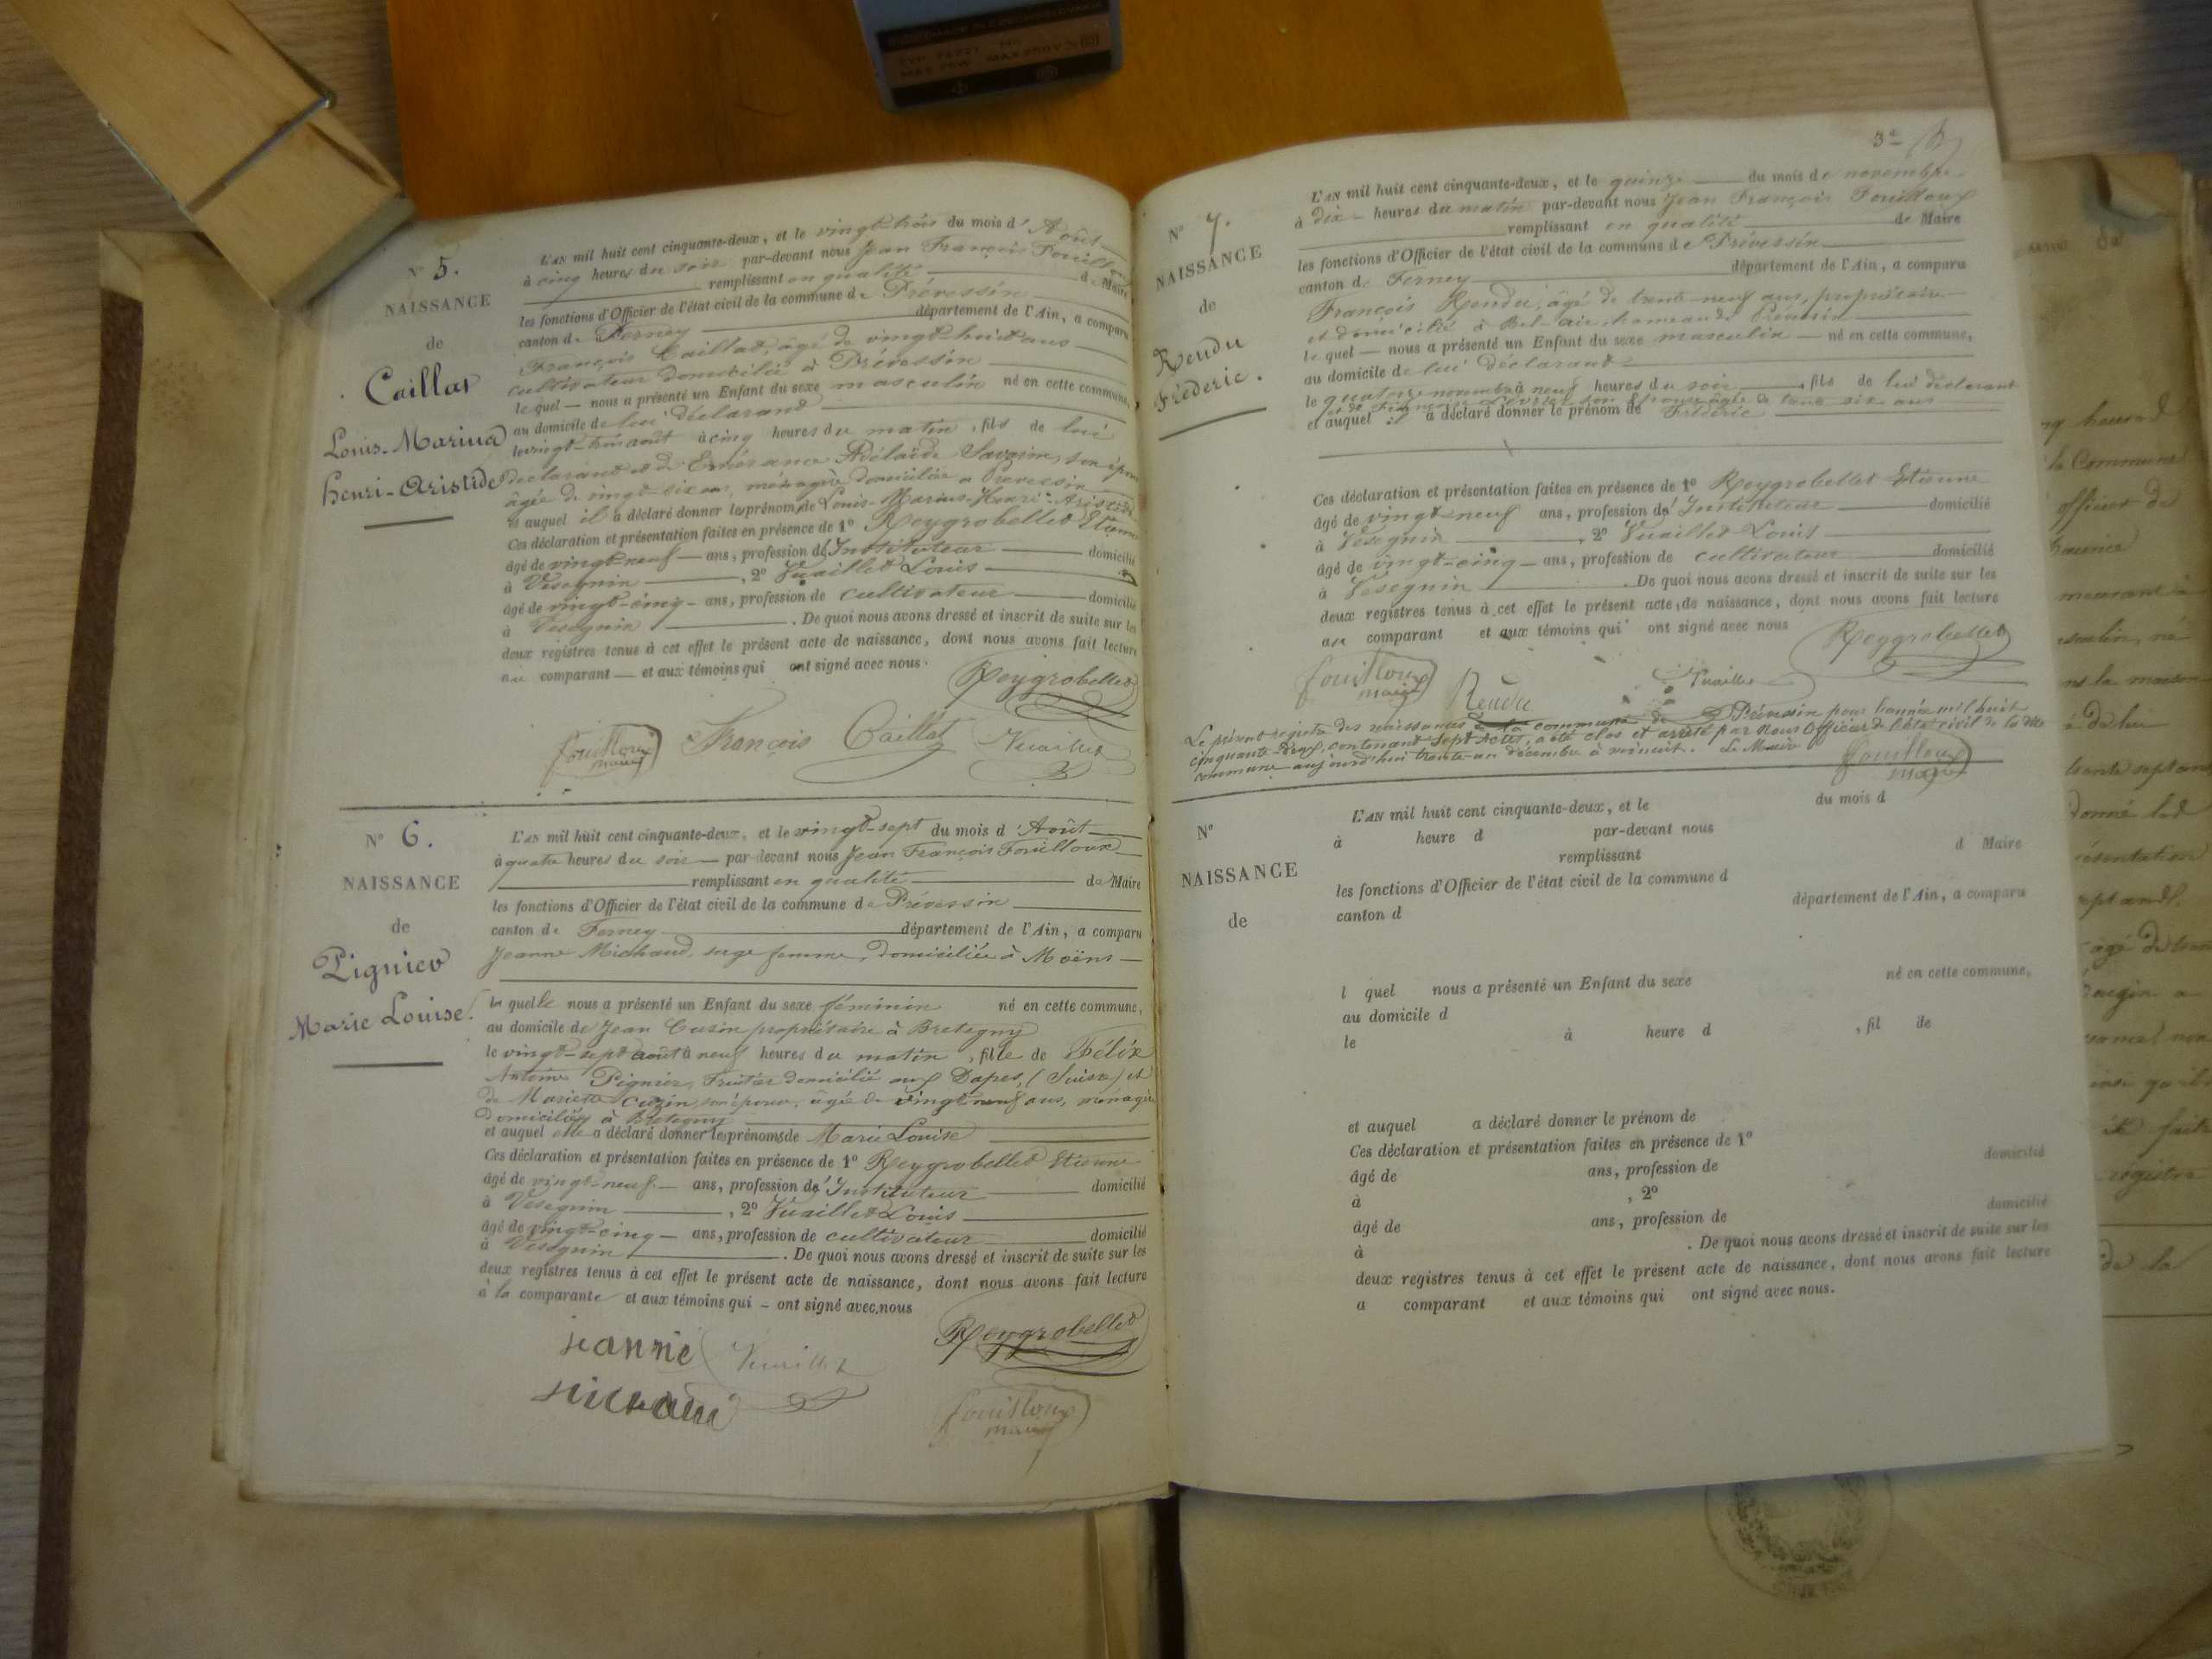 N° 5.
NAISSANCE
de
Caillat
Louis-Marius
henri-Aristide
L'AN mil huit cent cinquante-deux, et le vingt-trois du mois d'Août
à cinq heures du soir par-devant nous Jean François Fouilloux
remplissant en qualité de Maire
les fonctions d'Officier de l'état civil de la commune de Prévessin
canton de Ferney département de l'Ain, a comparu
François Caillat, âgé de vingt-huit ans
cultivateur domicilié à Prévessin
lequel nous a présenté un Enfant du sexe masculin né en cette commune,
au domicile de lui déclarant
le vingt-trois août à cinq heures du matin, fils de lui
déclarant et de Adélaïde son épouse
âgée de vingt-six ans, ménagère domiciliée à Prévessin
et auquel il a déclaré donner les prénoms de Louis-Marius-Henri-Aristide
Ces déclaration et présentation faites en présence de 1° Reygrobellet Etienne
âgé de vingt-neuf ans, profession d'Instituteur domicilié
à Vésegnin, 2° Vuaillet Louis
âgé de vingt-cinq ans, profession de cultivateur domicilié
à Vésegnin. De quoi nous avons dressé et inscrit de suite sur les
deux registres tenus à cet effet le présent acte de naissance, dont nous avons fait lecture
au comparant et aux témoins qui ont signé avec nous.
Reygrobellet
fouilloux maire François Caillat Vuaillet
N° 6.
NAISSANCE
de
Pignier
Marie Louise.
L'AN mil huit cent cinquante-deux, et le vingt-sept du mois d'Août
à quatre heures du soir par-devant nous Jean François Fouilloux
remplissant en qualité de Maire
les fonctions d'Officier de l'état civil de la commune de Prévessin
canton de Ferney département de l'Ain, a comparu
Jeanne Michaud, sage femme, domiciliée à Moëns
laquelle nous a présenté un Enfant du sexe féminin né en cette commune,
au domicile de Jean Cusin propriétaire à Bretegny
le vingt-sept août à neuf heures du matin, fille de Félix
Antoine Pignier, Fruitier domicilié aux Dapes, (Suisse) et
de Mariette Cuzin, son épouse, âgée de vingt neuf ans, ménagère
domiciliée à Bretegny
et auquel elle a déclaré donner les prénoms de Marie Louise
Ces déclaration et présentation faites en présence de 1° Reygrobellet Etienne
âgé de vingt-neuf ans, profession d'Instituteur domicilié
à Vésegnin, 2° Vuaillet Louis
âgé de vingt-cinq ans, profession de cultivateur domicilié
à Vésegnin. De quoi nous avons dressé et inscrit de suite sur les
deux registres tenus à cet effet le présent acte de naissance, dont nous avons fait lecture
à la comparante et aux témoins qui ont signé avec nous
jeanne Vuaillet Reygrobellet
michaud fouilloux maire
3e
N° 7.
NAISSANCE
de
Rendu
Fréderic.
L'AN mil huit cent cinquante-deux, et le quinze du mois de novembre
à dix heures du matin par-devant nous Jean François Fouilloux
remplissant en qualité de Maire
les fonctions d'Officier de l'état civil de la commune de Prévessin
canton de Ferney département de l'Ain, a comparu
François Rendu, âgé de trente-neuf ans, propriétaire
et domicilié à Bel-air, hameau de Prévessin
lequel nous a présenté un Enfant du sexe masculin né en cette commune,
au domicile de lui déclarant
le quatorze novembre à neuf heures du soir, fils de lui déclarant
et de Françoise son Epouse âgée de trente six ans
et auquel il a déclaré donner le prénom de Fréderic
Ces déclaration et présentation faites en présence de 1° Reygrobellet Etienne
âgé de vingt-neuf ans, profession d'Instituteur domicilié
à Vésegnin, 2° Vuaillet Louis
âgé de vingt-cinq ans, profession de cultivateur domicilié
à Vésegnin. De quoi nous avons dressé et inscrit de suite sur les
deux registres tenus à cet effet le présent acte de naissance, dont nous avons fait lecture
au comparant et aux témoins qui ont signé avec nous
Reygrobellet
fouilloux maire Rendu Vuaillet
Le présent registre des naissances de la commune de Prévessin pour l'année mil huit
cinquante-deux, contenant sept actes, a été clos et arrêté par nous Officier de l'état civil de la dite
commune aujourd'hui trente-un décembre à minuit. Le Maire
fouilloux maire
N°
NAISSANCE
de
L'AN mil huit cent cinquante-deux, et le du mois d
à heure d par-devant nous
remplissant d Maire
les fonctions d'Officier de l'état civil de la commune d
canton d département de l'Ain, a comparu
l quel nous a présenté un Enfant du sexe né en cette commune,
au domicile d
le à heure d , fil de
et auquel a déclaré donner le prénom de
Ces déclaration et présentation faites en présence de 1°
âgé de ans, profession de domicilié
à , 2°
âgé de ans, profession de domicilié
à . De quoi nous avons dressé et inscrit de suite sur les
deux registres tenus à cet effet le présent acte de naissance, dont nous avons fait lecture
a comparant et aux témoins qui ont signé avec nous.